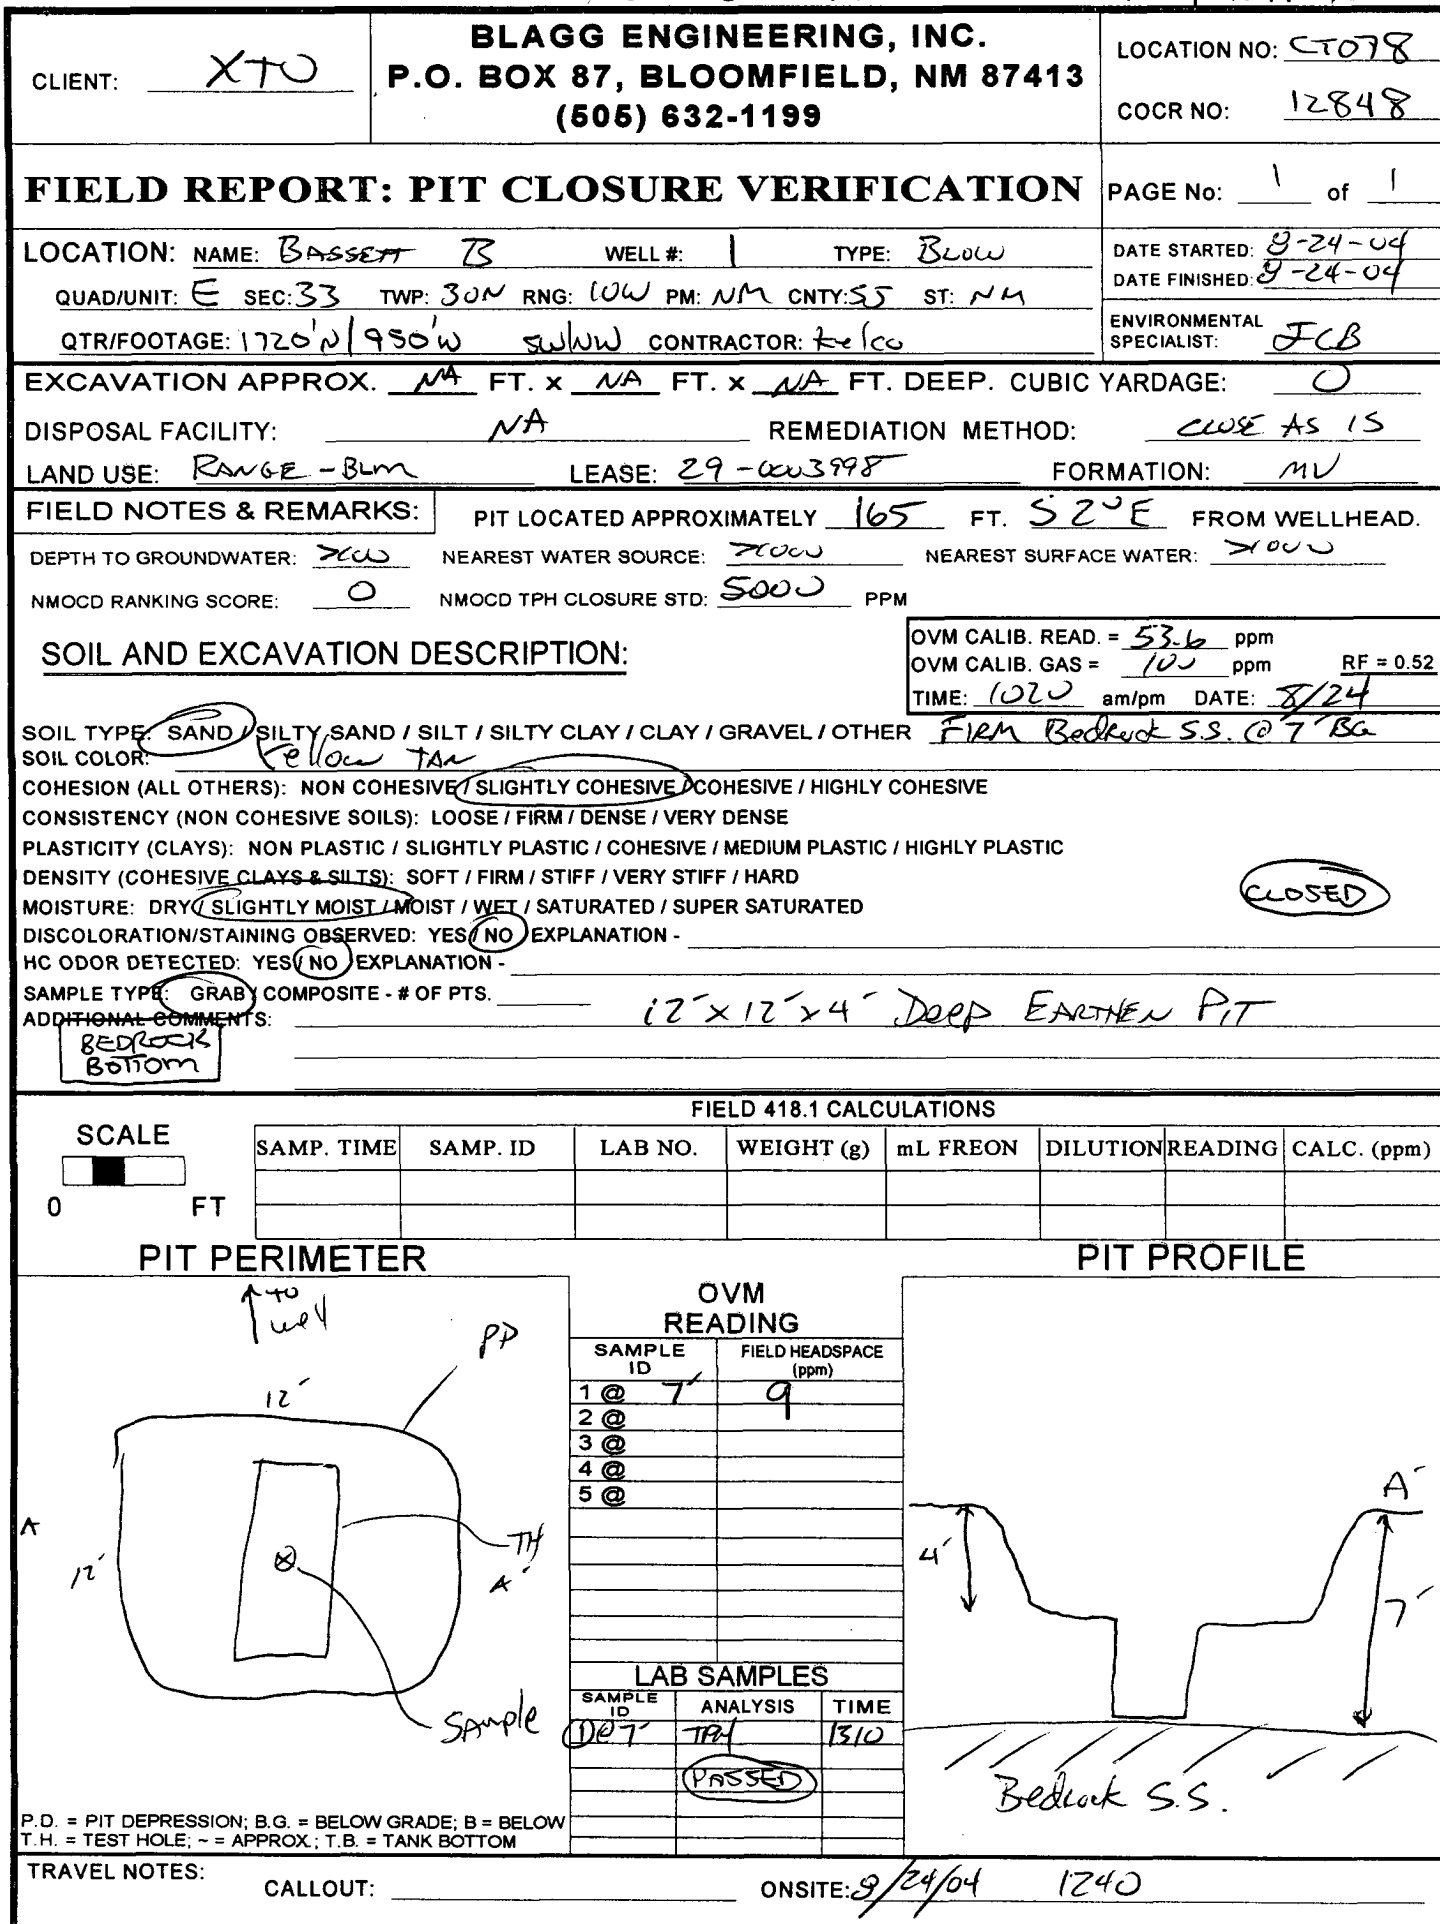 BLAGG ENGINEERING, INC.
P.O. BOX 87, BLOOMFIELD, NM 87413
(505) 632-1199
CLIENT: XTO
LOCATION NO: CT078
COCR NO: 12848
FIELD REPORT: PIT CLOSURE VERIFICATION
PAGE No: 1 of 1
LOCATION: NAME: BASSETT B WELL #: 1 TYPE: BLOW
QUAD/UNIT: E SEC: 33 TWP: 30N RNG: 10W PM: NM CNTY: SJ ST: NM
QTR/FOOTAGE: 1720'N/950'W SW/NW CONTRACTOR: Kelco
DATE STARTED: 8-24-04
DATE FINISHED: 8-24-04
ENVIRONMENTAL SPECIALIST: JCB
EXCAVATION APPROX. NA FT. x NA FT. x NA FT. DEEP. CUBIC YARDAGE: 0
DISPOSAL FACILITY: NA REMEDIATION METHOD: CLOSE AS IS
LAND USE: RANGE - BLM LEASE: 29-0003998 FORMATION: MV
FIELD NOTES & REMARKS: PIT LOCATED APPROXIMATELY 165 FT. S 20 E FROM WELLHEAD.
DEPTH TO GROUNDWATER: >100 NEAREST WATER SOURCE: >1000 NEAREST SURFACE WATER: >1000
NMOCD RANKING SCORE: 0 NMOCD TPH CLOSURE STD: 5000 PPM
SOIL AND EXCAVATION DESCRIPTION:
OVM CALIB. READ. = 53.6 ppm
OVM CALIB. GAS = 100 ppm RF = 0.52
TIME: 1020 am/pm DATE: 8/24
SOIL TYPE: SAND / SILTY SAND / SILT / SILTY CLAY / CLAY / GRAVEL / OTHER FIRM Bedrock S.S. @ 7' BG
SOIL COLOR: Yellow TAN
COHESION (ALL OTHERS): NON COHESIVE / SLIGHTLY COHESIVE / COHESIVE / HIGHLY COHESIVE
CONSISTENCY (NON COHESIVE SOILS): LOOSE / FIRM / DENSE / VERY DENSE
PLASTICITY (CLAYS): NON PLASTIC / SLIGHTLY PLASTIC / COHESIVE / MEDIUM PLASTIC / HIGHLY PLASTIC
DENSITY (COHESIVE CLAYS & SILTS): SOFT / FIRM / STIFF / VERY STIFF / HARD
MOISTURE: DRY / SLIGHTLY MOIST / MOIST / WET / SATURATED / SUPER SATURATED
CLOSED
DISCOLORATION/STAINING OBSERVED: YES / NO EXPLANATION -
HC ODOR DETECTED: YES / NO EXPLANATION -
SAMPLE TYPE: GRAB / COMPOSITE - # OF PTS.
ADDITIONAL COMMENTS: 12' x 12' x 4' Deep EARTHEN PIT
BEDROCK
BOTTOM
FIELD 418.1 CALCULATIONS
SCALE
0 FT
SAMP. TIME SAMP. ID LAB NO. WEIGHT (g) mL FREON DILUTION READING CALC. (ppm)
PIT PERIMETER
PIT PROFILE
TO
well
PD
12'
A
12'
TH
A'
Sample
OVM
READING
SAMPLE ID FIELD HEADSPACE (ppm)
1 @ 7' 9
2 @
3 @
4 @
5 @
LAB SAMPLES
SAMPLE ID ANALYSIS TIME
1@7' TPH 1310
PASSED
A'
4'
7'
Bedrock S.S.
P.D. = PIT DEPRESSION; B.G. = BELOW GRADE; B = BELOW
T.H. = TEST HOLE; ~ = APPROX.; T.B. = TANK BOTTOM
TRAVEL NOTES: CALLOUT: ONSITE: 8/24/04 1240